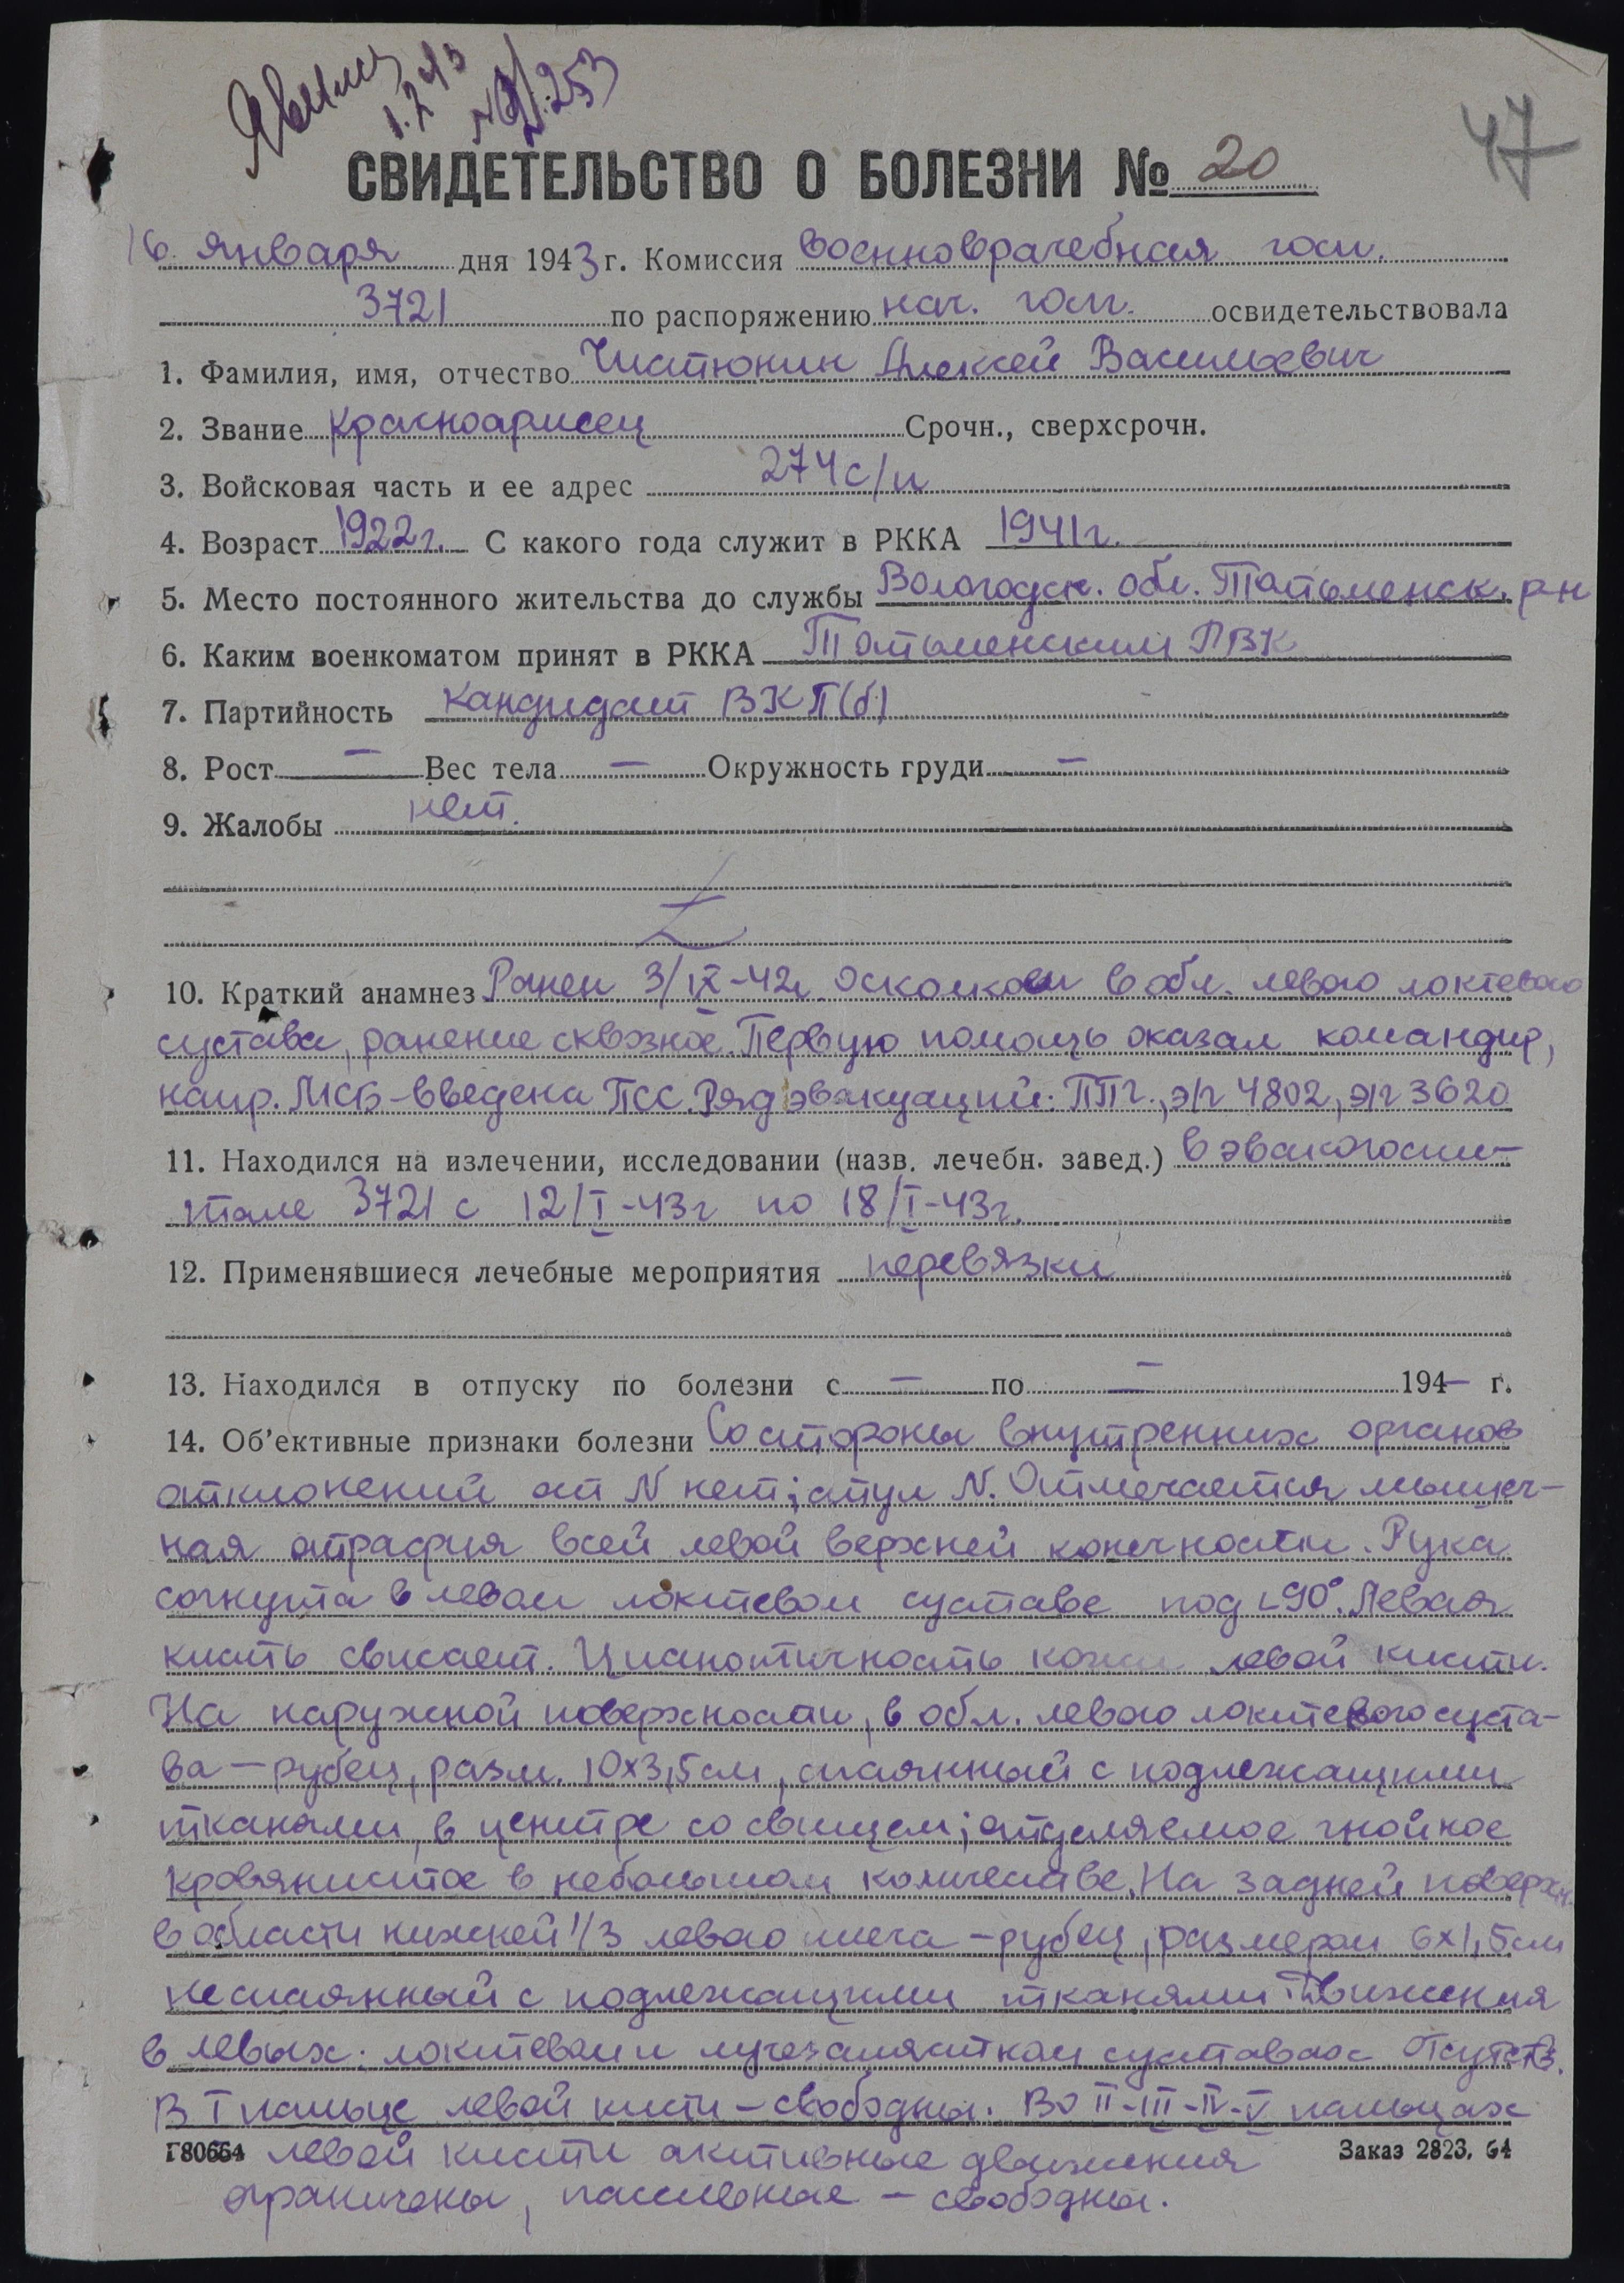 Явился
1.2.43
47
СВИДЕТЕЛЬСТВО О БОЛЕЗНИ № 20
16 января дня 1943 г. Комиссия военноврачебная госп.
3721 по распоряжению нач. госп. освидетельствовала
1. Фамилия, имя, отчество Чистюнин Алексей Васильевич
2. Звание красноармеец Срочн., сверхсрочн.
3. Войсковая часть и ее адрес 274 с/п
4. Возраст 1922 г. С какого года служит в РККА 1941 г.
5. Место постоянного жительства до службы Вологодск. обл. Тотьменск. р-н
6. Каким военкоматом принят в РККА Тотьменским РВК
7. Партийность кандидат ВКП(б)
8. Рост — Вес тела — Окружность груди —
9. Жалобы нет.
10. Краткий анамнез Ранен 3/IX-42г. осколком в обл. левого локтевого
сустава, ранение сквозное. Первую помощь оказал командир,
напр. МСБ-введена ПСС. Ряд эвакуаций: ППГ., э/г 4802, э/г 3620
11. Находился на излечении, исследовании (назв. лечебн. завед.) в эвакогоспи-
тале 3721 с 12/I-43г по 18/I-43г.
12. Применявшиеся лечебные мероприятия перевязки
13. Находился в отпуску по болезни с — по — 194— г.
14. Об'ективные признаки болезни Со стороны внутренних органов
отклонений от N нет; стул N. Отмечается мышеч-
ная атрафия всей левой верхней конечности. Рука
согнута в левом локтевом суставе под ∠90°. Левая
кисть свисает. Цианотичность кожи левой кисти.
На наружной поверхности, в обл. левого локтевого суста-
ва — рубец, разм. 10х3,5 см, спаянный с подлежащими
тканями, в центре со свищем; отделяемое гнойное
кровянистое в небольшом количестве. На задней поверхн.
в области нижней 1/3 левого плеча - рубец, размером 6х1,5 см
неспаянный с подлежащими тканями. Движения
в левых: локтевом и лучезапястном суставах отсутств.
В I пальце левой кисти - свободны. Во II-III-IV-V пальцах
левой кисти активные движения
ограничены, пассивные — свободны.
Г80664 Заказ 2823. 64